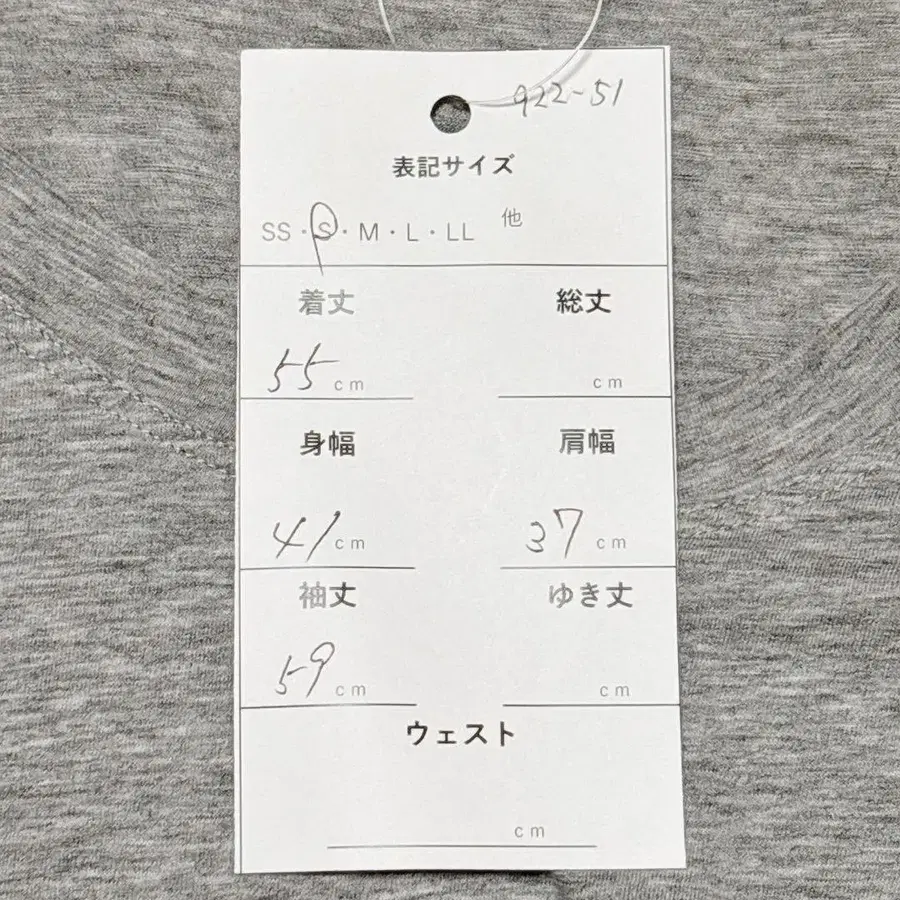 922-51
表記サイズ
SS・S・M・L・LL 他
着丈 総丈
55 cm cm
身幅 肩幅
41 cm 37 cm
袖丈 ゆき丈
59 cm cm
ウェスト
cm